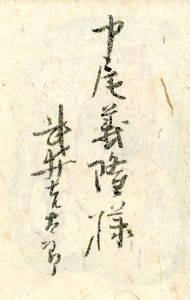 中尾義隆様
武井吉太郎